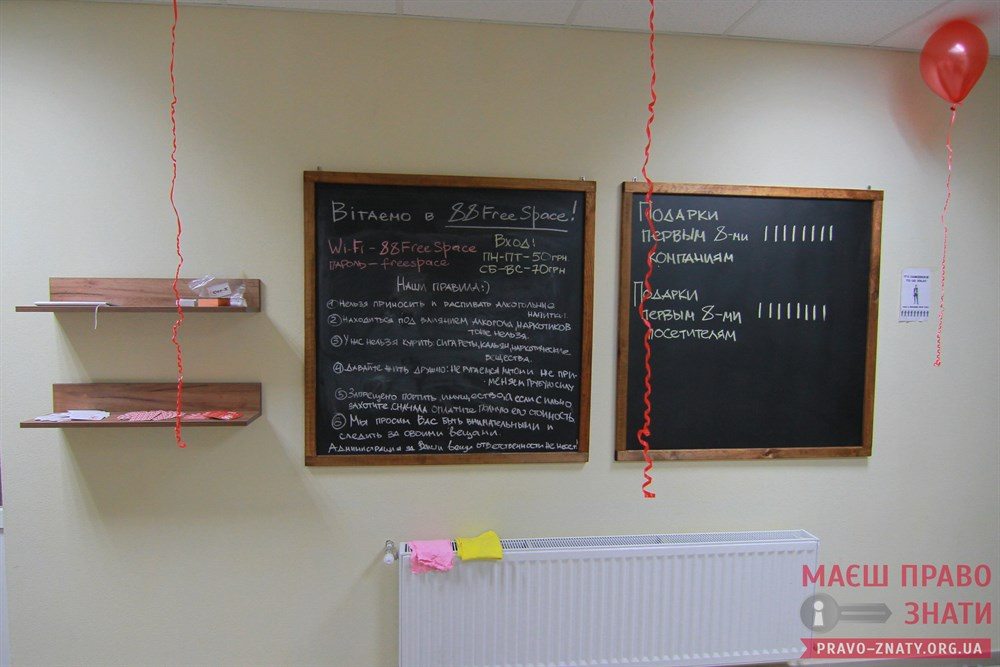 Вітаємо в 88FreeSpace!
Wi-Fi - 88FreeSpace
пароль - freespace
Вход!
ПН-ПТ - 50грн
СБ-ВС - 70грн
Наши правила:)
① Нельзя приносить и распивать алкогольные
напитки!
② Находиться под влиянием алкоголя, наркотиков
тоже нельзя.
③ У нас нельзя курить сигареты, кальян, наркотические
вещества.
④ Давайте жить дружно: не ругаемся матом и не при-
меняем грубую силу
⑤ Запрещено портить имущество, а если сильно
захотите, сначала оплатите полную его стоимость
⑥ Мы просим Вас быть внимательными и
следить за своими вещами.
Администрация за Ваши вещи ответственности не несет!
Подарки
первым 8-ми
компаниям
Подарки
первым 8-ми
посетителям
МАЄШ ПРАВО
ЗНАТИ
PRAVO-ZNATY.ORG.UA